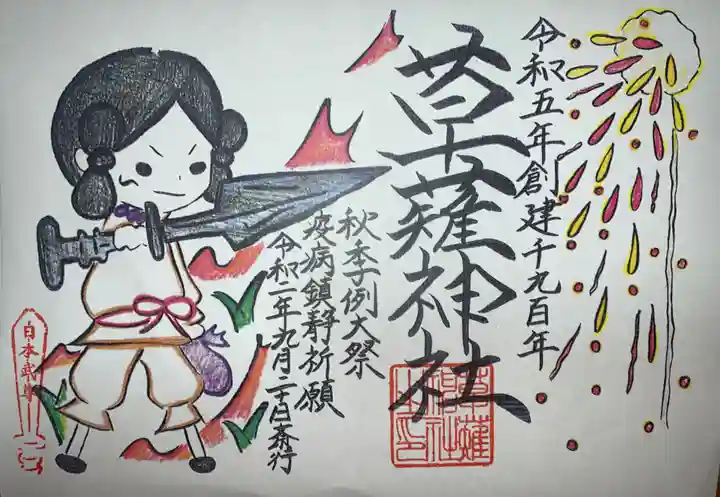 令和五年創建千九百年
草薙神社
秋季例大祭
疫病鎮静祈願
令和二年九月二十日斎行
日本武尊
草薙神社之印